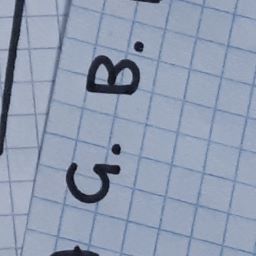 G. B.